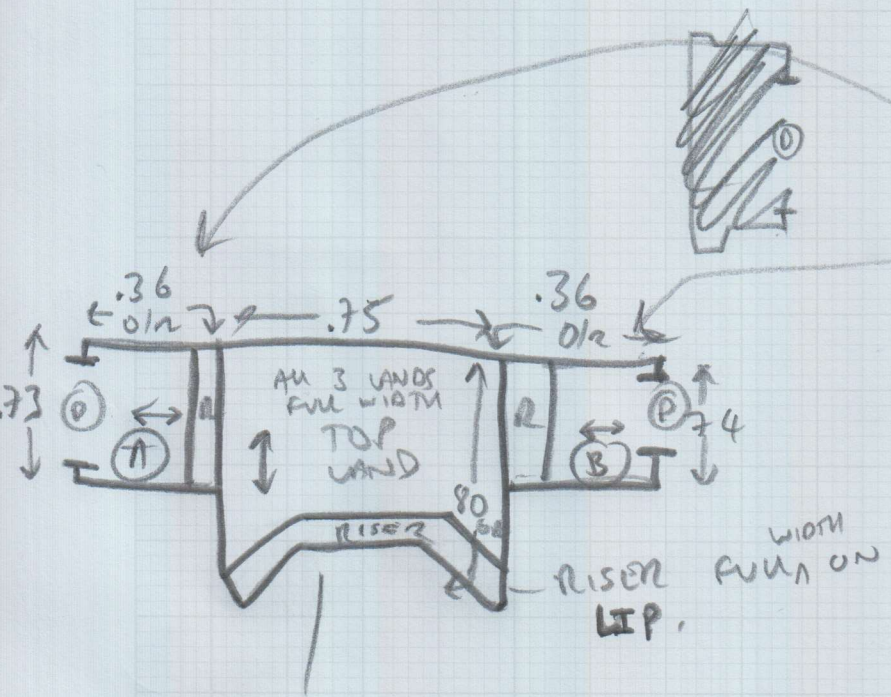 D
.36
O/R
.75
.36
O/R
.73
D
A
R
ALL 3 LANDS
FULL WIDTH
TOP
LAND
80
R
B
P
.74
RISER
RISER FULL WIDTH ON
LIP.